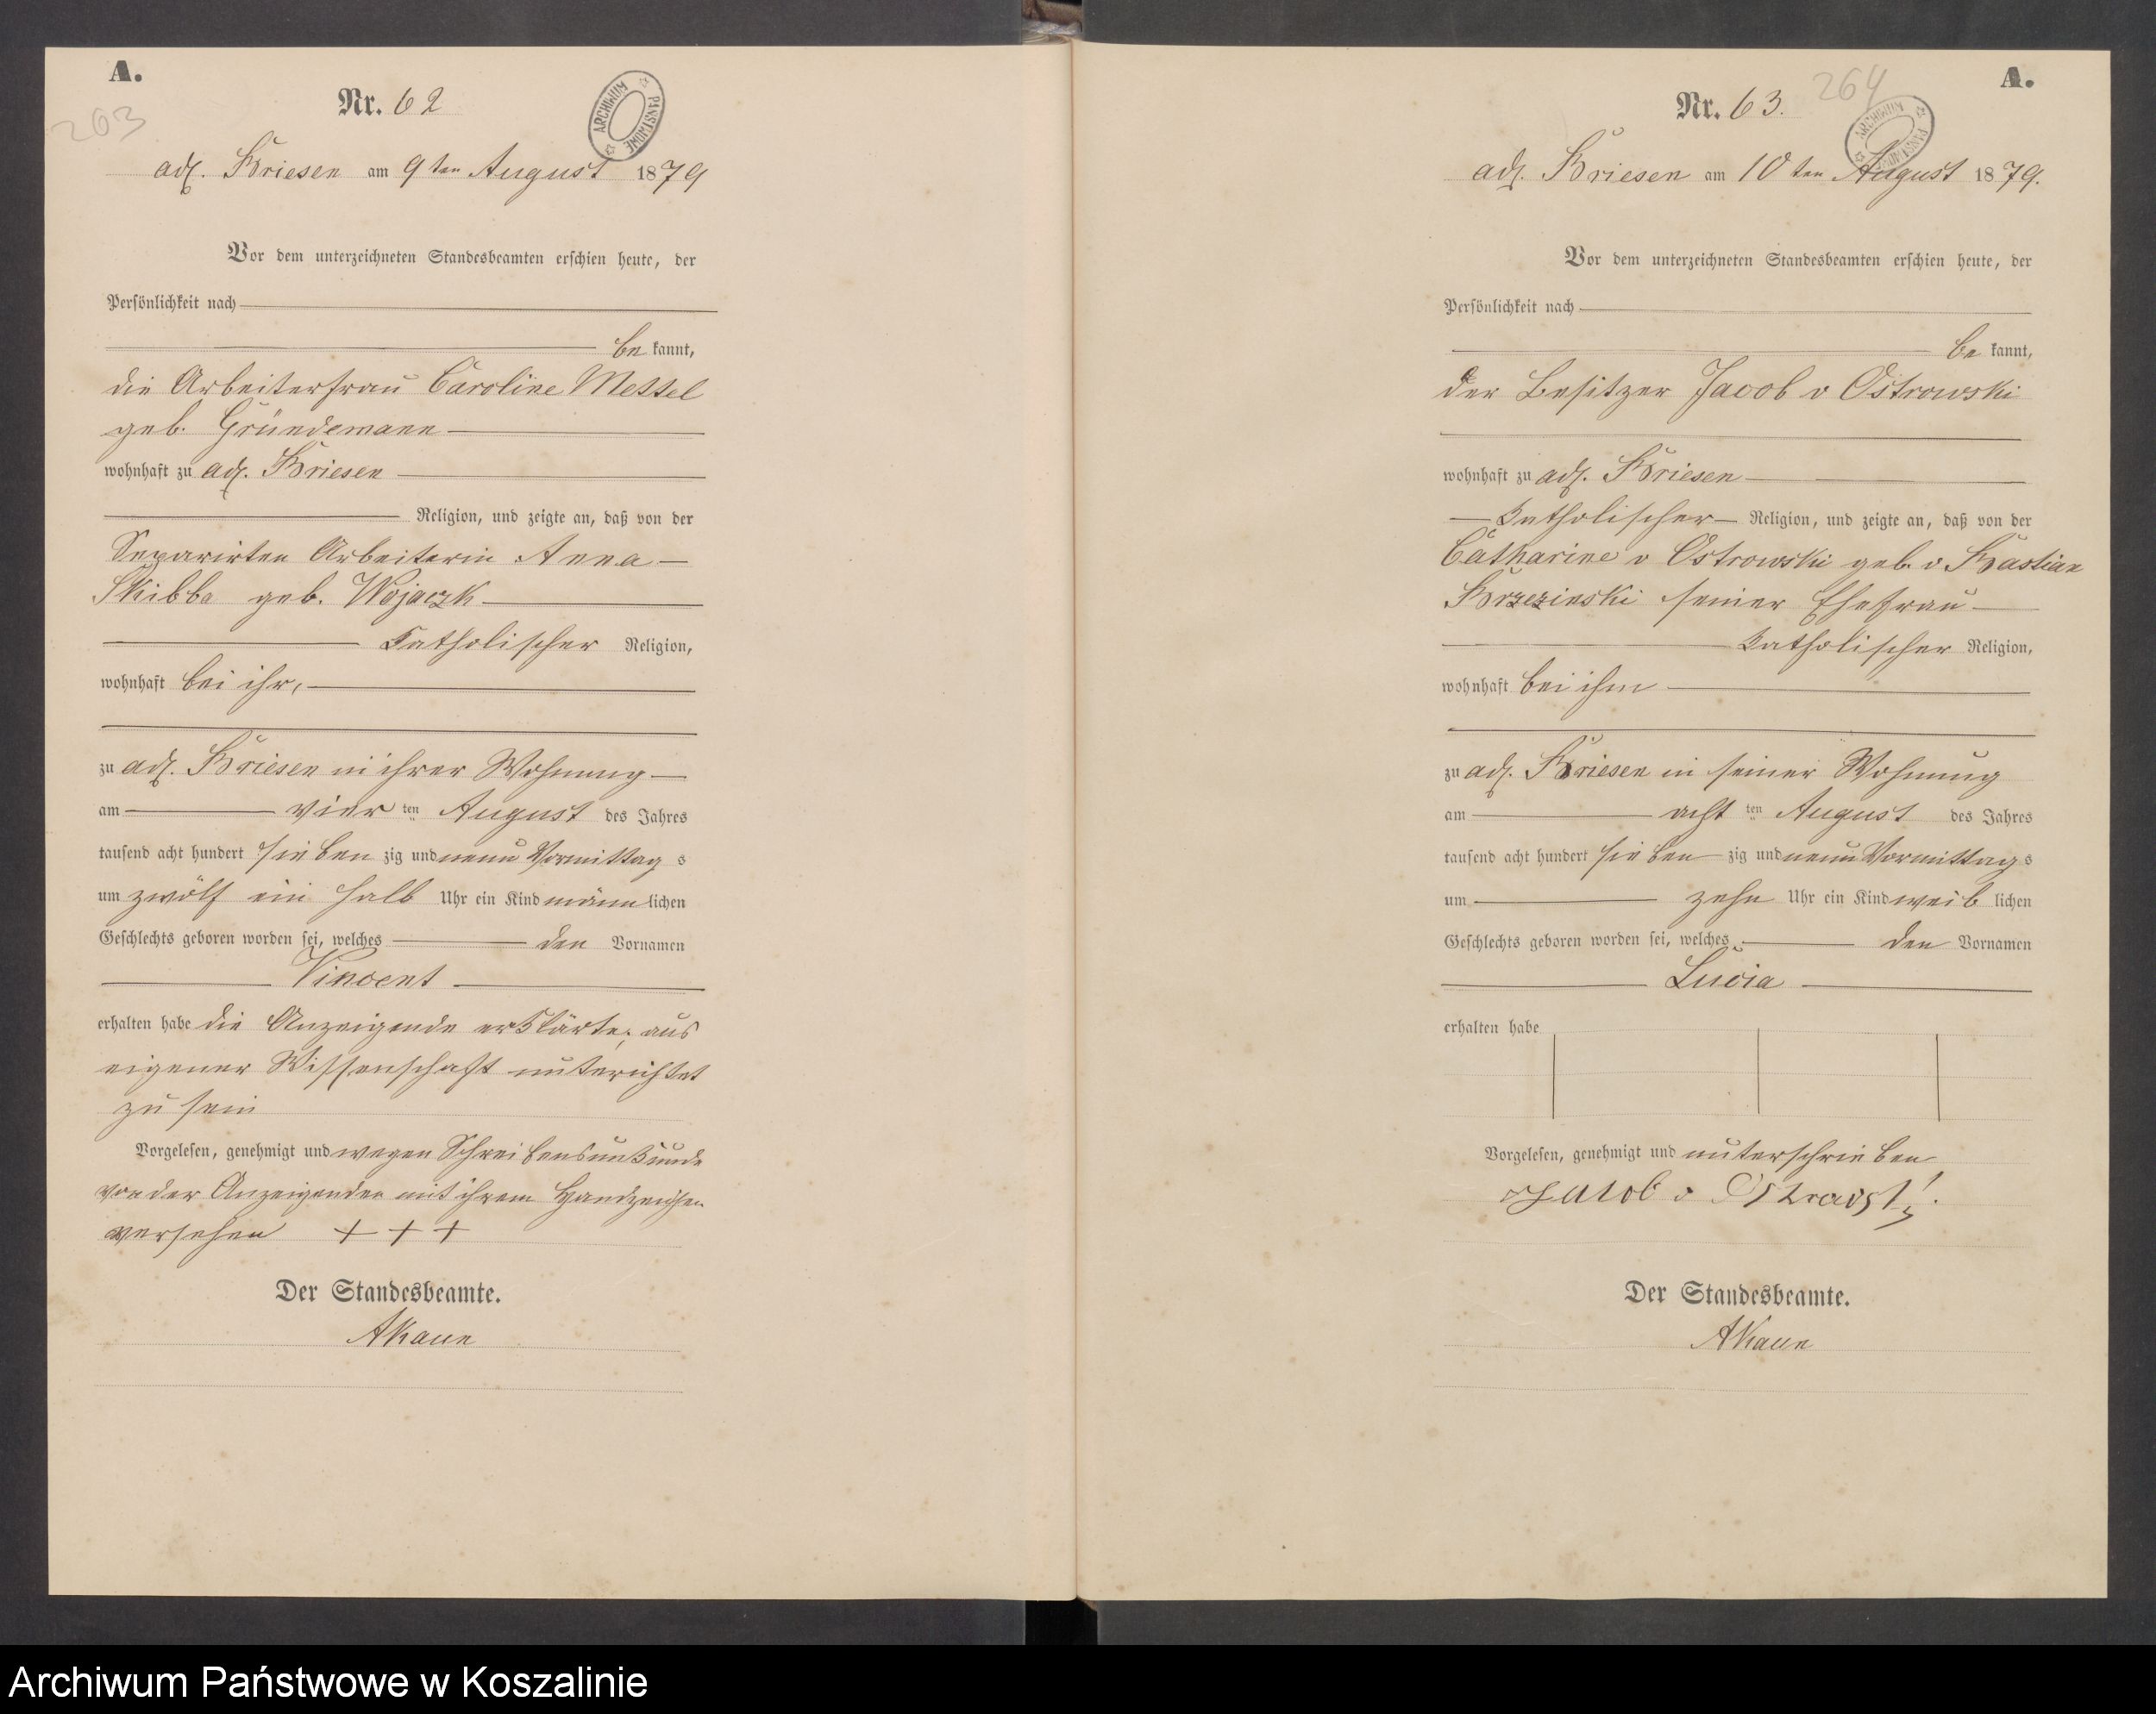 A.
203
Nr. 62
ARCHIWUM PAŃSTWOWE
adl. Briesen am 9ten August 1879
Vor dem unterzeichneten Standesbeamten erschien heute, der
Persönlichkeit nach
be kannt,
die Arbeiterfrau Caroline Messel
geb. Gründemann
wohnhaft zu adl. Briesen
Religion, und zeigte an, daß von der
Separirten Arbeiterin Anna
Skibba geb. Wojaczk
Katholischer Religion,
wohnhaft bei ihr,
zu adl. Briesen in ihrer Wohnung
am vier ten August des Jahres
tausend acht hundert sieben zig und neun Vormittag s
um zwölf ein halb Uhr ein Kind männ lichen
Geschlechts geboren worden sei, welches den Vornamen
Vincent
erhalten habe die Anzeigende erklärte, aus
eigener Wissenschaft unterichtet
zu sein
Vorgelesen, genehmigt und wegen Schreibensunkunde
von der Anzeigenden mit ihrem Handzeichen
versehen + + +
Der Standesbeamte.
AKaun
A.
264
Nr. 63.
ARCHIWUM PAŃSTWOWE
adl. Briesen am 10ten August 1879.
Vor dem unterzeichneten Standesbeamten erschien heute, der
Persönlichkeit nach
be kannt,
der Besitzer Jacob v Ostrowski
wohnhaft zu adl. Briesen
Katholischer Religion, und zeigte an, daß von der
Catharine v Ostrowski geb. v Bastian
Brzezinski seiner Ehefrau
Katholischer Religion,
wohnhaft bei ihm
zu adl. Briesen in seiner Wohnung
am acht ten August des Jahres
tausend acht hundert sieben zig und neun Vormittag s
um zehn Uhr ein Kind weib lichen
Geschlechts geboren worden sei, welches den Vornamen
Lucia
erhalten habe
Vorgelesen, genehmigt und unterschrieben
Jakob v
Der Standesbeamte.
AKaun
Archiwum Państwowe w Koszalinie